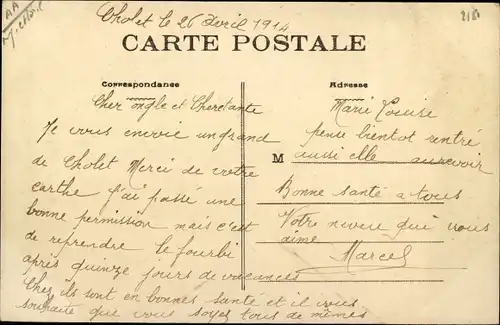 Cholet le 26 Avril 1914
CARTE POSTALE
Correspondance
Cher ongle et Cher tante
Je vous envoie un grand
de Cholet Merci de votre
carthe j'ai passé une
bonne permission mais c'est
de reprendre le fourbi
après quinze jours de vacances
Chez ils sont en bonnes santé et il vous
souhaite que vous soyez tous de mêmes
Adresse
Marie Louise
pense bientot rentré
M aussi elle aurevoir
Bonne santé a tous
Votre neveu qui vous
aime
Marcel